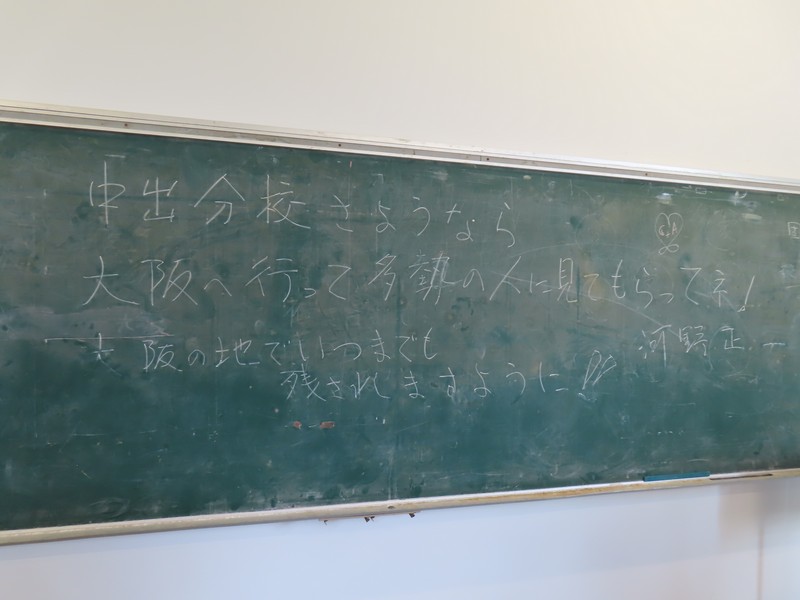 中出分校さようなら
大阪へ行って多勢の人に見てもらってネ!
大阪の地でいつまでも
残されますように!!
河野正一